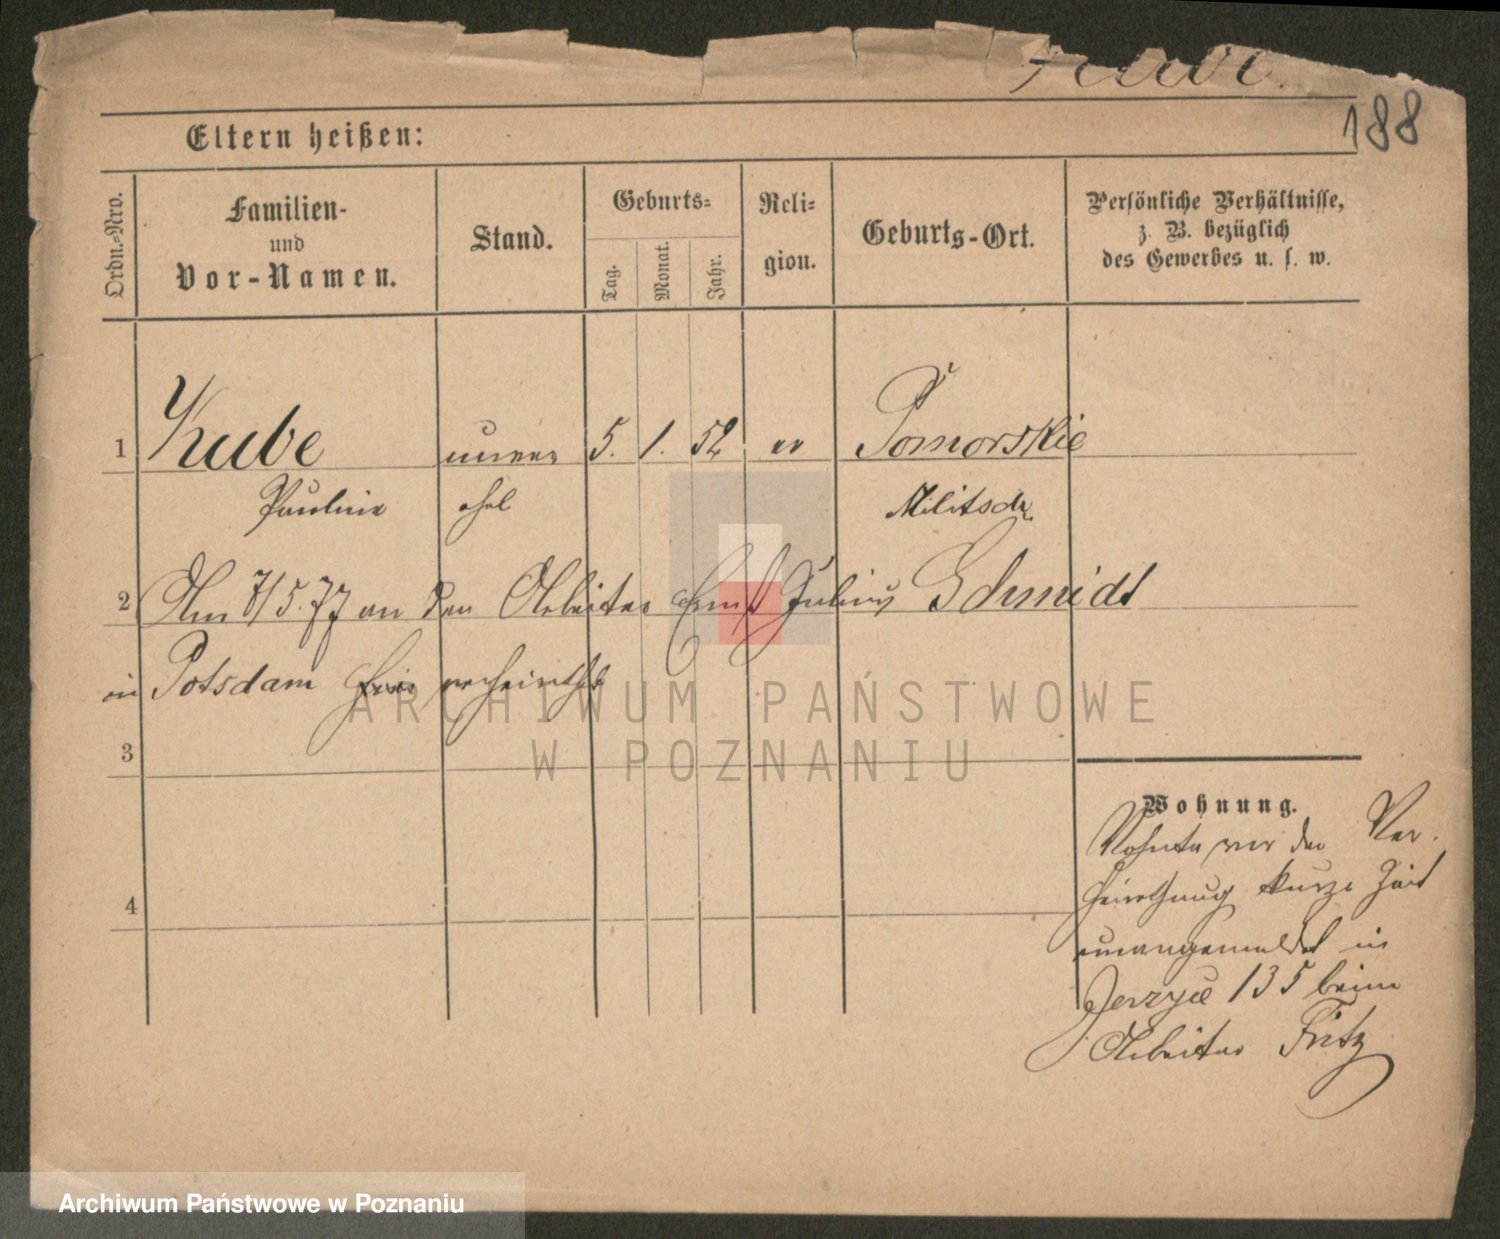 Kube.
188
Eltern heißen:
Ordn.-Nro.
Familien-
und
Vor-Namen.
Stand.
Geburts-
Tag.
Monat.
Jahr.
Reli-
gion.
Geburts-Ort.
Persönliche Verhältnisse,
z. B. bezüglich
des Gewerbes u. s. w.
1 Kube unver 5. 1. 52 ev Pomorskie
Pauline ehel Militsch
2 Am 7/5.77 an den Arbeiter Ernst Julius Schmidt
in Potsdam verheirathet
3
4
Wohnung.
Wohnte vor der Ver-
heirathung kurze Zeit
unangemeldet in
Jerzyce 135 beim
Arbeiter Fritz
ARCHIWUM PAŃSTWOWE
W POZNANIU
Archiwum Państwowe w Poznaniu